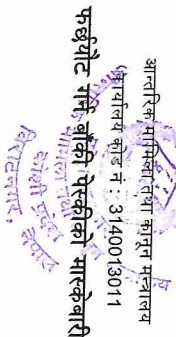 आन्तरिक मामिला तथा कानून मन्त्रालय
कार्यालय कोड नं : 3140013011
फर्छ्यौट गर्न बाँकी पेस्कीको मास्केबारी
कोशी प्रदेश
विराटनगर,